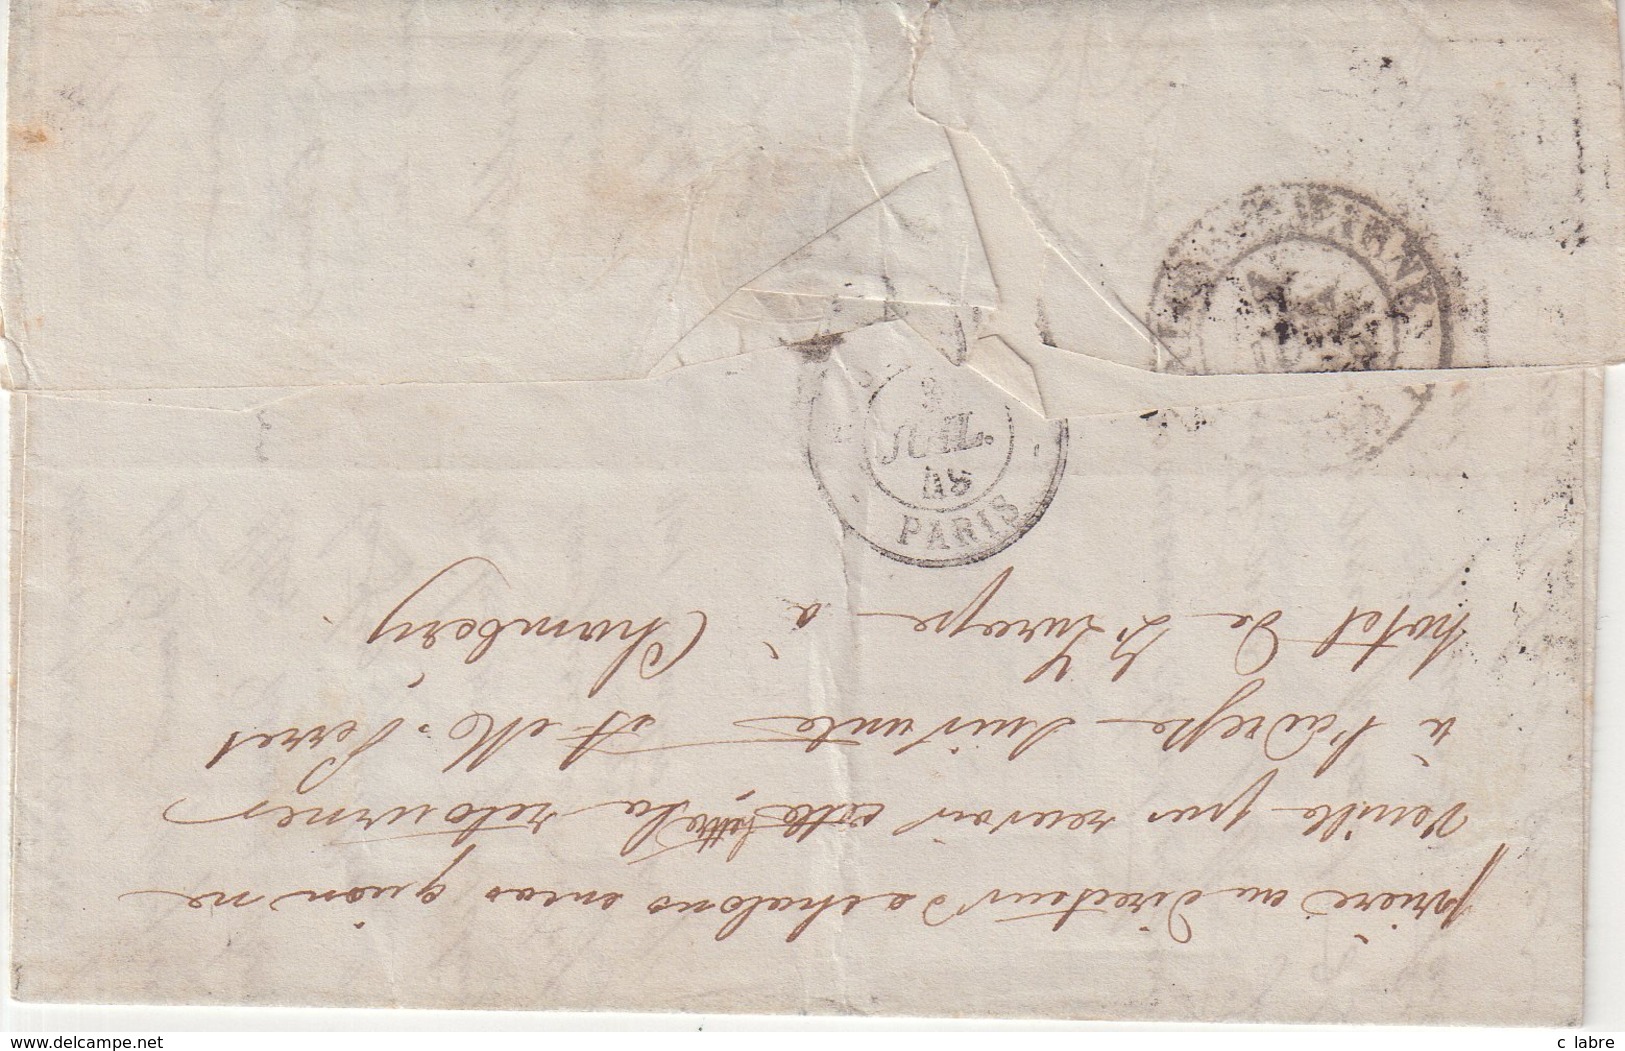 prière au directeur de chalons en cas qu'on ne
Veuille pas recevoir cette lettre de la retourner
à l'adresse suivante à Mr. Perret
hotel de L'Europe à Chambéry.
JUIL.
48
PARIS
delcampe.net
c labre